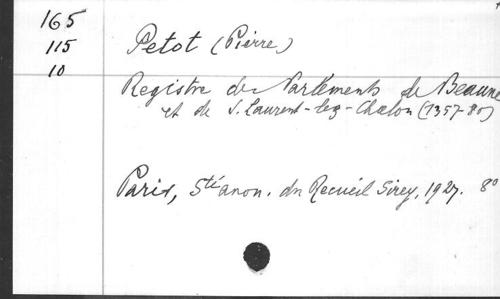 165
115
10
Petot (Pierre)
Registre des Parlements de Beaune
et de S. Laurent-lez-Chalon (1357-80)
Paris, Sté anon. du Recueil Sirey, 1927. 8º